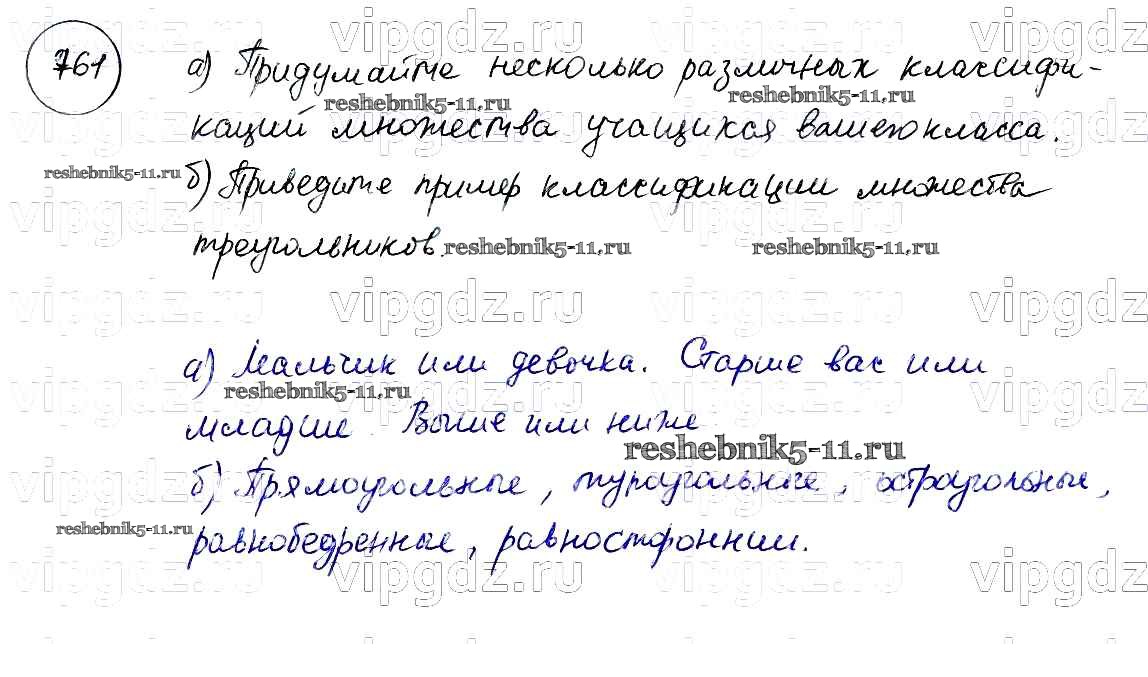 761
а) Придумайте несколько различных классифи-
каций множества учащихся вашего класса.
б) Приведите пример классификации множества
треугольников.
а) Мальчик или девочка. Старше вас или
младше. Выше или ниже
б) Прямоугольные, тупоугольные, остроугольные,
равнобедренные, равносторонний.
vipgdz.ru
reshebnik5-11.ru